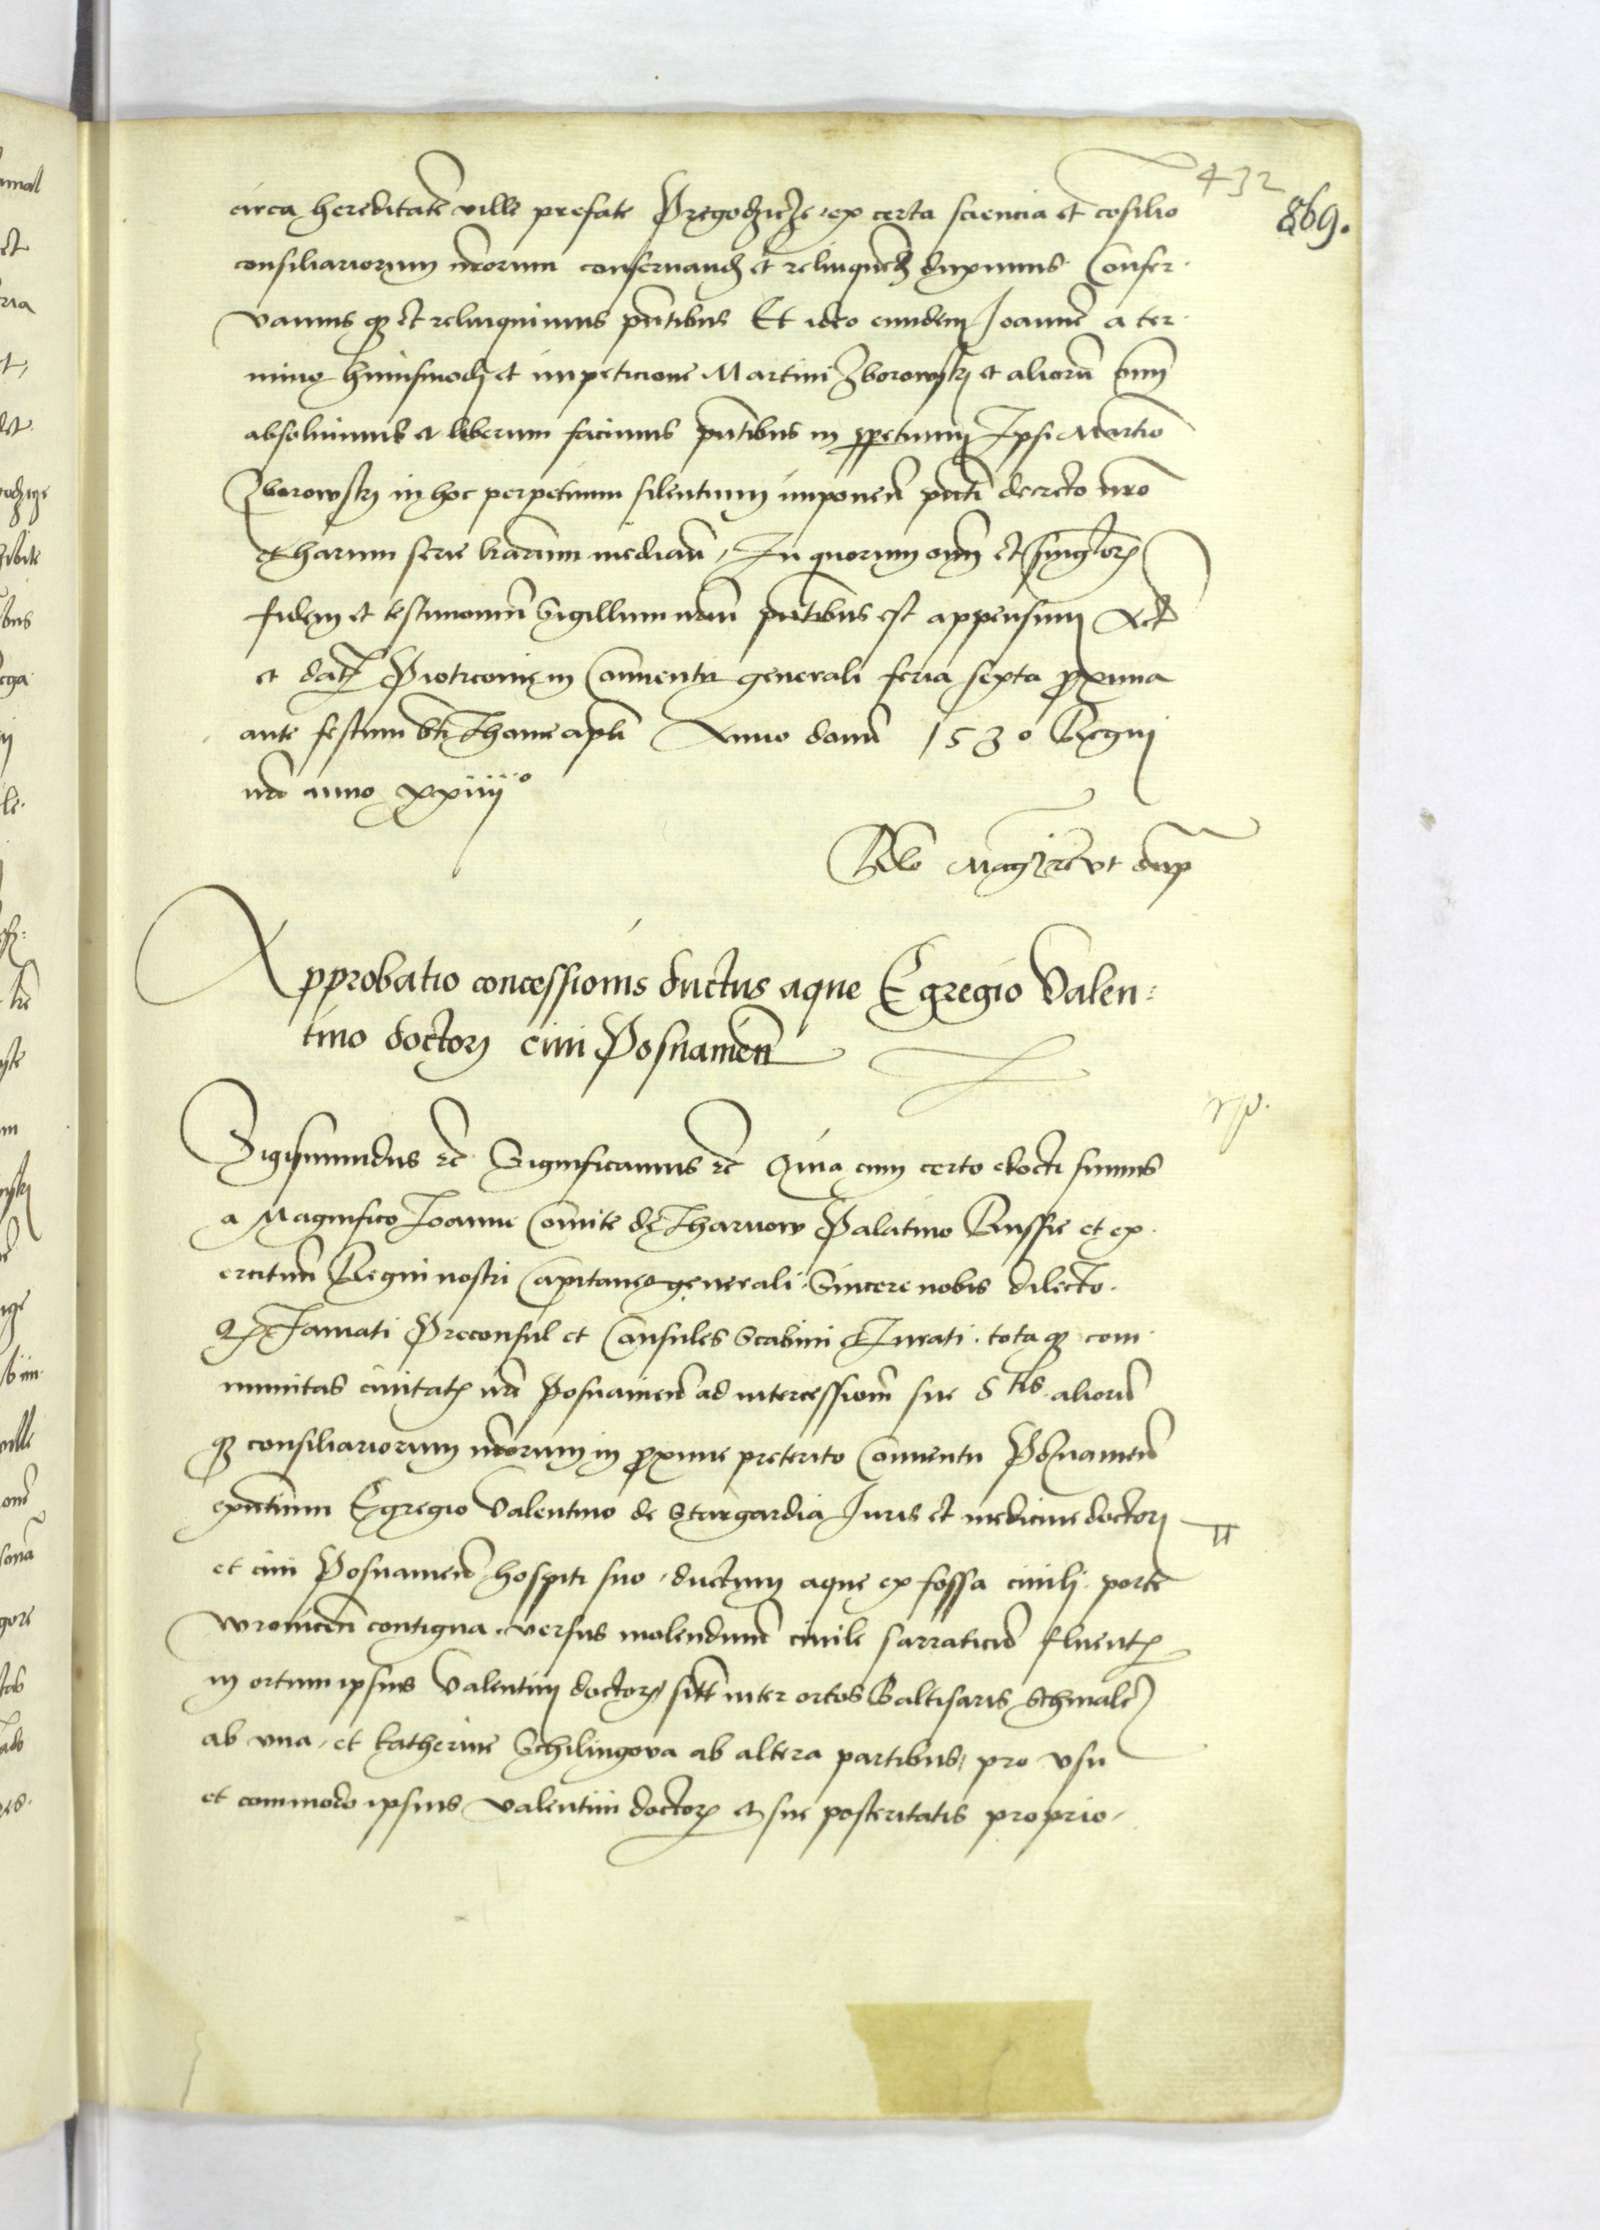 432
869.
circa hereditatē ville prefate Pregodzicze ex certa sciencia et cōsilio
consiliariorum nr̄orum conseruand̄ et relinquend̄ duximus Conser
vamusq3 et relinquimus pn̄tibus Et ideo eundem Joannē a ter
mino huiusmodi et impeticione Martini Zborowski et aliorū om̄m
absoluimus et liberum facimus pn̄tibus in ꝑpetuum Ipsi Martīo
Zborowski in hoc perpetuum silentium imponen̄ pn̄ti decreto nr̄o
et harum serie l̄rarum median̄, In quorum om̄m et singl̄orꝫ
fidem et testimoniū Sigillum nrm̄ pn̄tibus est appensum Act̄
et datꝫ Piotrcouie in Conuentu generali feria sexta ꝓxima
ante festum bt̄i Thome apl̄i Anno domī 1530 Regni
nr̄i anno xxiiiiº
Rel̄o Mag̅ci etc ut supra
Approbatio concessionis ductus aque Egregio Valen=
tino doctori ciui Posnanien̄
Sigismundus etc Significamus etc Quia cum certo edocti sumus
a Magnifico Joanne Comite de Tharnow Palatino Russie et ex
ercituū Regni nostri Capitaneo generali Sincere nobis dilecto.
Qꝫ Famati Preconsul et Consules Scabini et Jurati. totaq3 com
munitas ciuitatꝫ nr̄e Posnanien̄ ad intercessionē sue S^tis aliorū
q3 consiliariorum nr̄orum in ꝓxime preterito Conuentu Posnanien̄
existentium Egregio Valentino de Stargardia Juris et medicine doctori
et ciui Posnanien̄ hospiti suo, ductum aque ex fossa ciuili porte
Wronicen̄ contigua, versus molendinū ciuile sarraticū fluentꝫ
in ortum ipsius Valentini doctorꝫ sitū inter ortos Baltisaris Schmalcz
ab vna, et Katherine Schilingova ab altera partibus, pro vsu
et commodo ipsius Valentini doctorꝫ et sue posteritatis proprio,